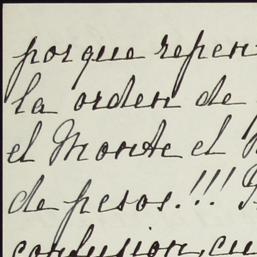 porque repen
la orden de
el Monte el
de pesos!!!
confusion, cu